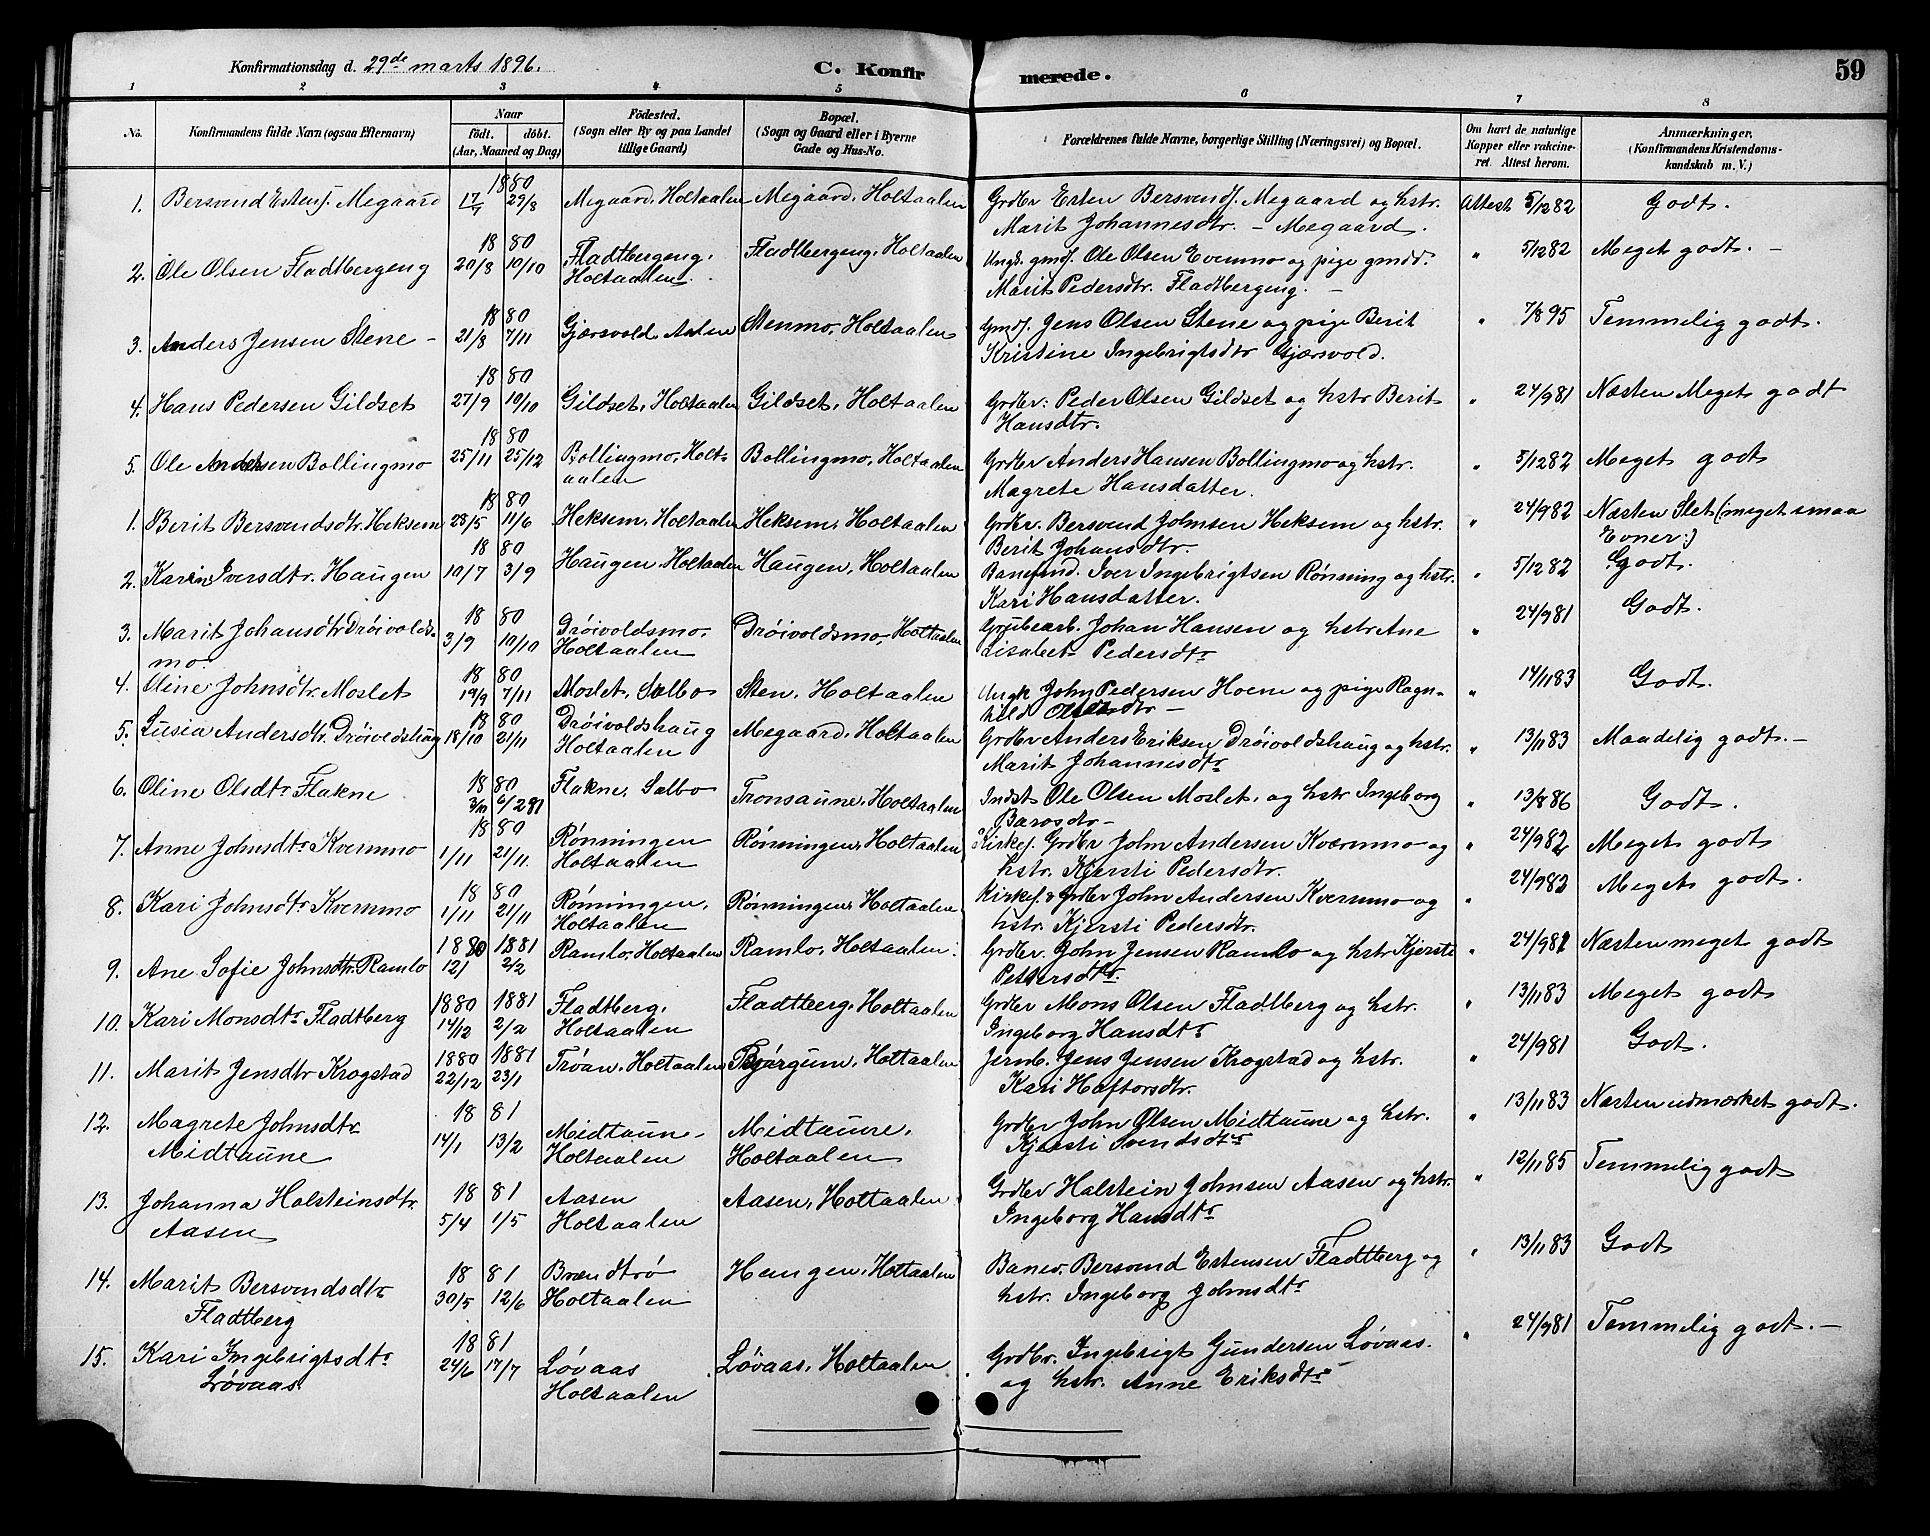 Konfirmationsdag d. 29de marts 1896.
C. Konfirmerede.
59
1 2 3 4 5 6 7 8
No.
Konfirmandens fulde Navn (ogsaa Efternavn)
Naar
födt. döbt.
(Aar, Maaned og Dag)
Födested.
(Sogn eller By og paa Landet
tillige Gaard)
Bopæl.
(Sogn og Gaard eller i Byerne
Gade og Hus-No.
Forældrenes fulde Navne, borgerlige Stilling (Næringsvei) og Bopæl.
Om havt de naturlige
Kopper eller vakcine-
ret. Attest herom.
Anmærkninger.
(Konfirmandens Kristendoms-
kundskab m. V.)
1. Bersvend Estensf. Megaard 1880 17/7 29/8 Megaard, Holtaalen Megaard, Holtaalen Grdbr Esten Bersvendf. Megaard og hstr. Attest 5/12 82 Godt.
Marit Johannesdtr. - Megaard.
2. Ole Olsen Fladtbergeng 1880 20/8 10/10 Fladtbergeng, Fladtbergeng, Holtaalen Ungk. gmdf. Ole Olsen Evenmo og pige gmdd. " 5/12 82 Meget godt. -
Holtaalen. Marit Pedersdtr. Fladtbergeng. -
3. Anders Jensen Stene - 1880 21/8 7/11 Gjærsvold, Aalen Stenmo, Holtaalen Gmdf. Jens Olsen Stene og pige Berit " 7/8 95 Temmelig godt.
Kristine Ingebrigtsdtr Gjærsvold.
4. Hans Pedersen Gildset 1880 27/9 10/10 Gildset, Holtaalen Gildset, Holtaalen Grdbr: Peder Olsen Gildset og hstr Berit " 24/9 81 Næsten Meget godt
Hansdtr.
5. Ole Andersen Bollingmo 1880 25/11 25/12 Bollingmo, Holt- Bollingmo, Holtaalen Grdbr Anders Hansen Bollingmo og hstr. " 5/12 82 Meget godt
aalen Magrete Hansdatter.
1. Berit Bersvendsdtr. Heksem 1880 28/5 11/6 Heksem, Holtaalen Heksem, Holtaalen Grdbr. Bersvend Johnsen Heksem og hstr. " 24/9 82 Næsten Slet (meget smaa
Berit Johansdtr. Evner.)
2. Karin Iversdtr. Haugen 1880 10/7 3/9 Haugen, Holtaalen Haugen, Holtaalen Banefmd. Iver Ingebrigtsen Rønning og hstr. " 5/12 82 Godt.
Kari Hansdatter.
3. Marit Johansdtr Drøivolds- 1880 3/9 10/10 Drøivoldsmo, Drøivoldsmo, Holtaalen Grubearb. Johan Hansen og hstr Ane " 24/9 81 Godt.
mo. Holtaalen Lisabet Pedersdtr
4. Oline Johnsdtr. Moslet 1880 19/9 7/11 Moslet, Sælbo Sten, Holtaalen Ungk John Pedersen Hoem og pige Ragn- " 14/11 83 Godt.
hild Olsdtr -
5. Lusia Andersdtr. Drøivoldshaug 1880 18/10 21/11 Drøivoldshaug Megaard, Holtaalen Grdbr Anders Eriksen Drøivoldshaug og hstr. " 13/11 83 Maadelig godt. -
Holtaalen Marit Johannesdtr
6. Oline Olsdtr Flakne 1880 6/2 81 Flakne, Sælbo Tronsaune, Holtaalen Indst Ole Olsen Moslet, og hstr Ingeborg " 13/8 86 Godt.
Baarosdtr -
7. Anne Johnsdtr Kvernmo 1880 1/11 21/11. Rønningen Rønningen, Holtaalen Kirkes. Grdbr John Andersen Kværnmo og " 24/9 82 Meget godt
Holtaalen hstr. Kjersti Pedersdtr.
8. Kari Johnsdtr Kvernmo 1880 1/11 21/11 Rønningen, Rønningen, Holtaalen Kirkes. & Grdbr John Andersen Kvernmo og " 24/9 82 Meget godt.
Holtaalen hstr. Kjersti Pedersdtr.
9. Ane Sofie Johnsdtr. Ramlo 1880 12/ 1881 2/2 Ramlo, Holtaalen Ramlo, Holtaalen. Grdbr. John Jensen Ramlo og hstr Kjersti " 24/9 82 Næsten meget godt
Pettersdtr.
10. Kari Monsdtr Fladtberg 1880 14/12 1881 2/2 Fladtberg, Fladtberg, Holtaalen Grdbr Mons Olsen Fladtberg og hstr. " 13/11 83 Meget godt
Holtaalen Ingeborg Hansdtr
11. Marit Jensdtr Krogstad 1880 22/12 1881 23/1 Trøan, Holtaalen Bjørgum, Holtaalen Jernb. Jens Jensen Krogstad og hstr. " 24/9 81 Godt.
Kari Haftorsdtr.
12. Magrete Johnsdtr 1881 14/1 13/2 Midtaun- Midtaune, Grdbr John Olsen Midtaune og hstr. " 13/11 83 Næsten udmærket godt.
Midtaune Holtaalen Holtaalen Kjersti Svendsdtr
13. Johanna Halsteinsdtr. 1881 5/4 1/5 Aasen Aasen, Holtaalen Grdbr Halstein Johnsen Aasen og hstr. " 12/11 85 Temmelig godt
Aasen Holtaalen Ingeborg Hansdtr
14. Marit Bersvendsdtr 1881 30/5 12/6 Brændtrø Haugen, Holtaalen Banev. Bersvend Estensen Fladtberg og " 13/11 83 Godt
Fladtberg Holtaalen hstr. Ingeborg Johnsdtr
15. Kari Ingebrigtsdtr 1881 24/6 17/7 Løvaas Løvaas, Holtaalen Grdbr. Ingebrigt Gundersen Løvaas. " 24/9 81 Temmelig godt. -
Løvaas. Holtaalen og hstr. Anne Eriksdtr